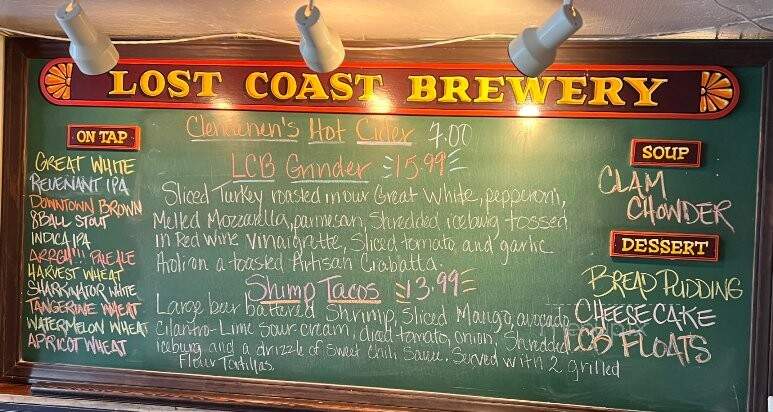 LOST COAST BREWERY
ON TAP
GREAT WHITE
REVENANT IPA
DOWNTOWN BROWN
8BALL STOUT
INDICA IPA
ARRGH!!! PALE ALE
HARVEST WHEAT
SHARKINATOR WHITE
TANGERINE WHEAT
WATERMELON WHEAT
APRICOT WHEAT
Clendenen's Hot Cider 7.00
LCB Grinder 15.99
Sliced Turkey roasted in our Great White, pepperoni,
Melled Mozzarella, parmesan, Shredded iceburg tossed
in Red Wine Vinaigrette, Sliced tomato, and garlic
Aioli on a toasted Artisan Ciabatta.
Shimp Tacos 13.99
Large beer battered Shrimp, Sliced Mango, avocado
Cilantro-Lime Sour cream, diced tomato, onion, Shredded
iceburg and a drizzle of Sweet Chili Sauce. Served with 2 grilled
Flour Tortillas.
SOUP
CLAM
CHOWDER
DESSERT
BREAD PUDDING
CHEESECAKE
LCB FLOATS